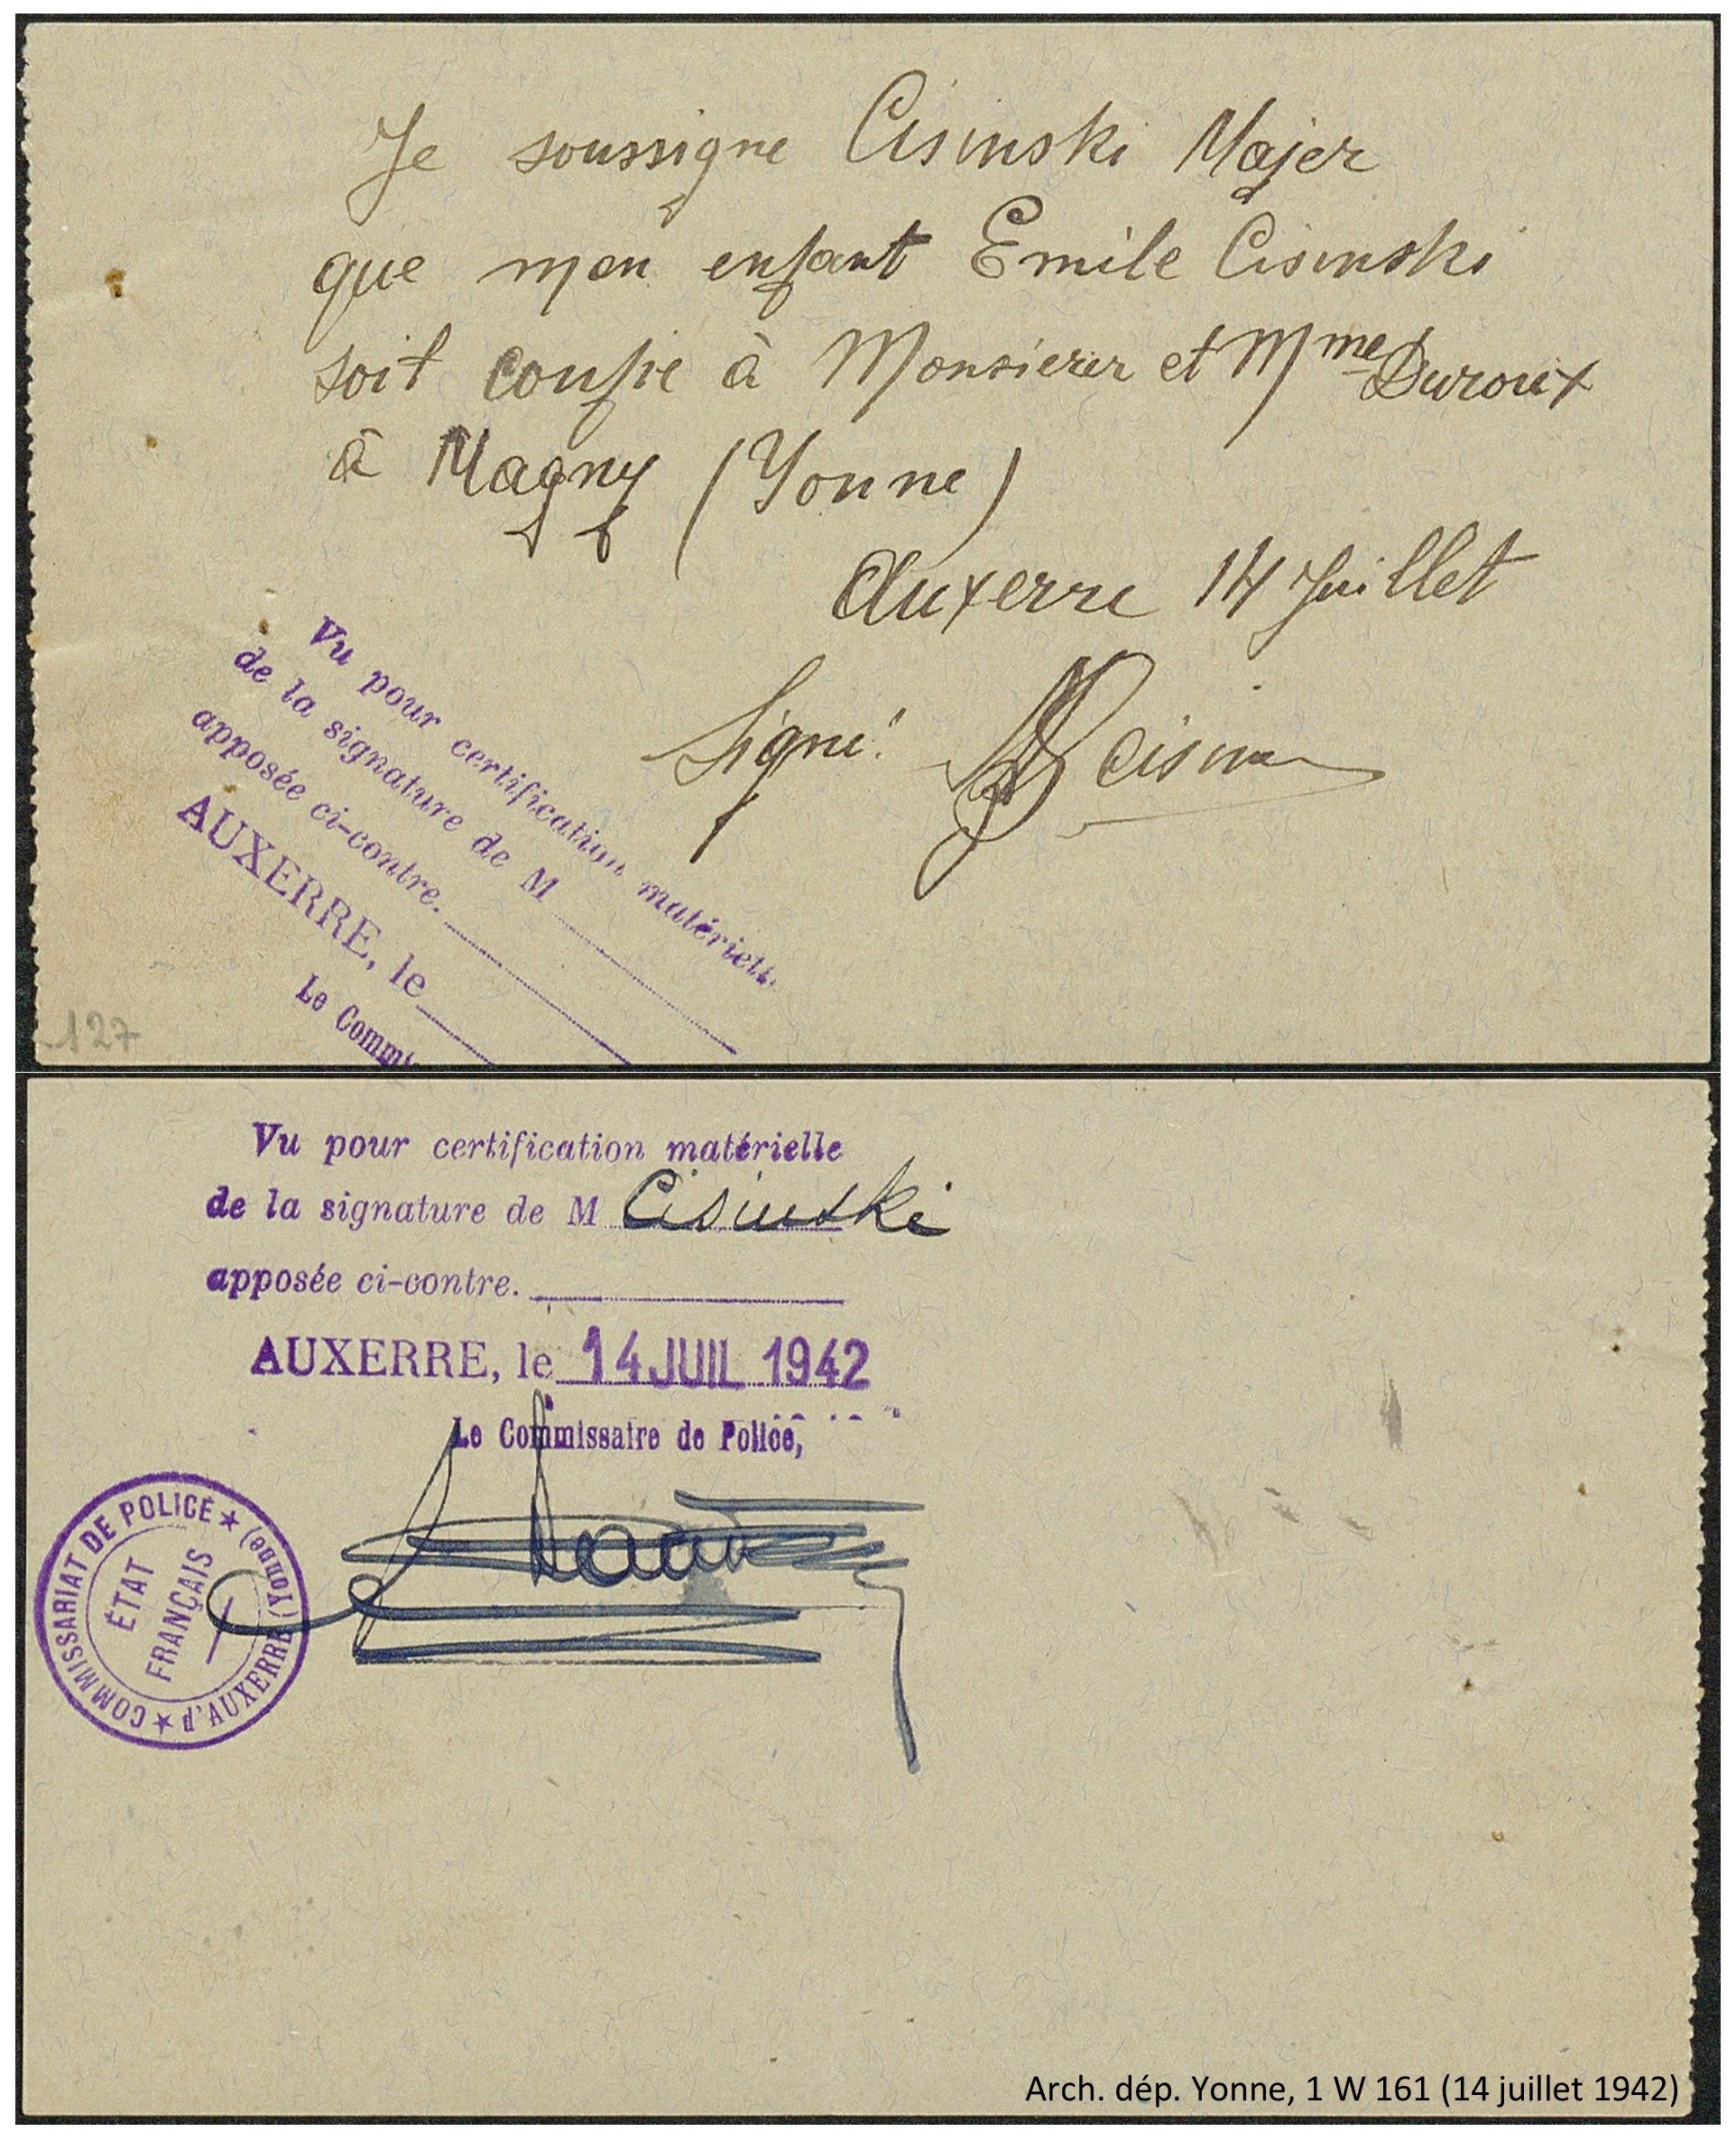 Je soussigne Cisinski Majer
que mon enfant Emile Cisinski
soit confie à Monsieur et Mme Duroux
à Magny (Yonne)
Auxerre 14 Juillet
Signé:
Vu pour certification matérielle
de la signature de M
apposée ci-contre.
AUXERRE, le
Le Commis
127
Vu pour certification matérielle
de la signature de M Cisinski
apposée ci-contre.
AUXERRE, le 14 JUIL 1942
Le Commissaire de Police,
COMMISSARIAT DE POLICE ★ d'AUXERRE (Yonne) ★
ÉTAT
FRANÇAIS
Arch. dép. Yonne, 1 W 161 (14 juillet 1942)